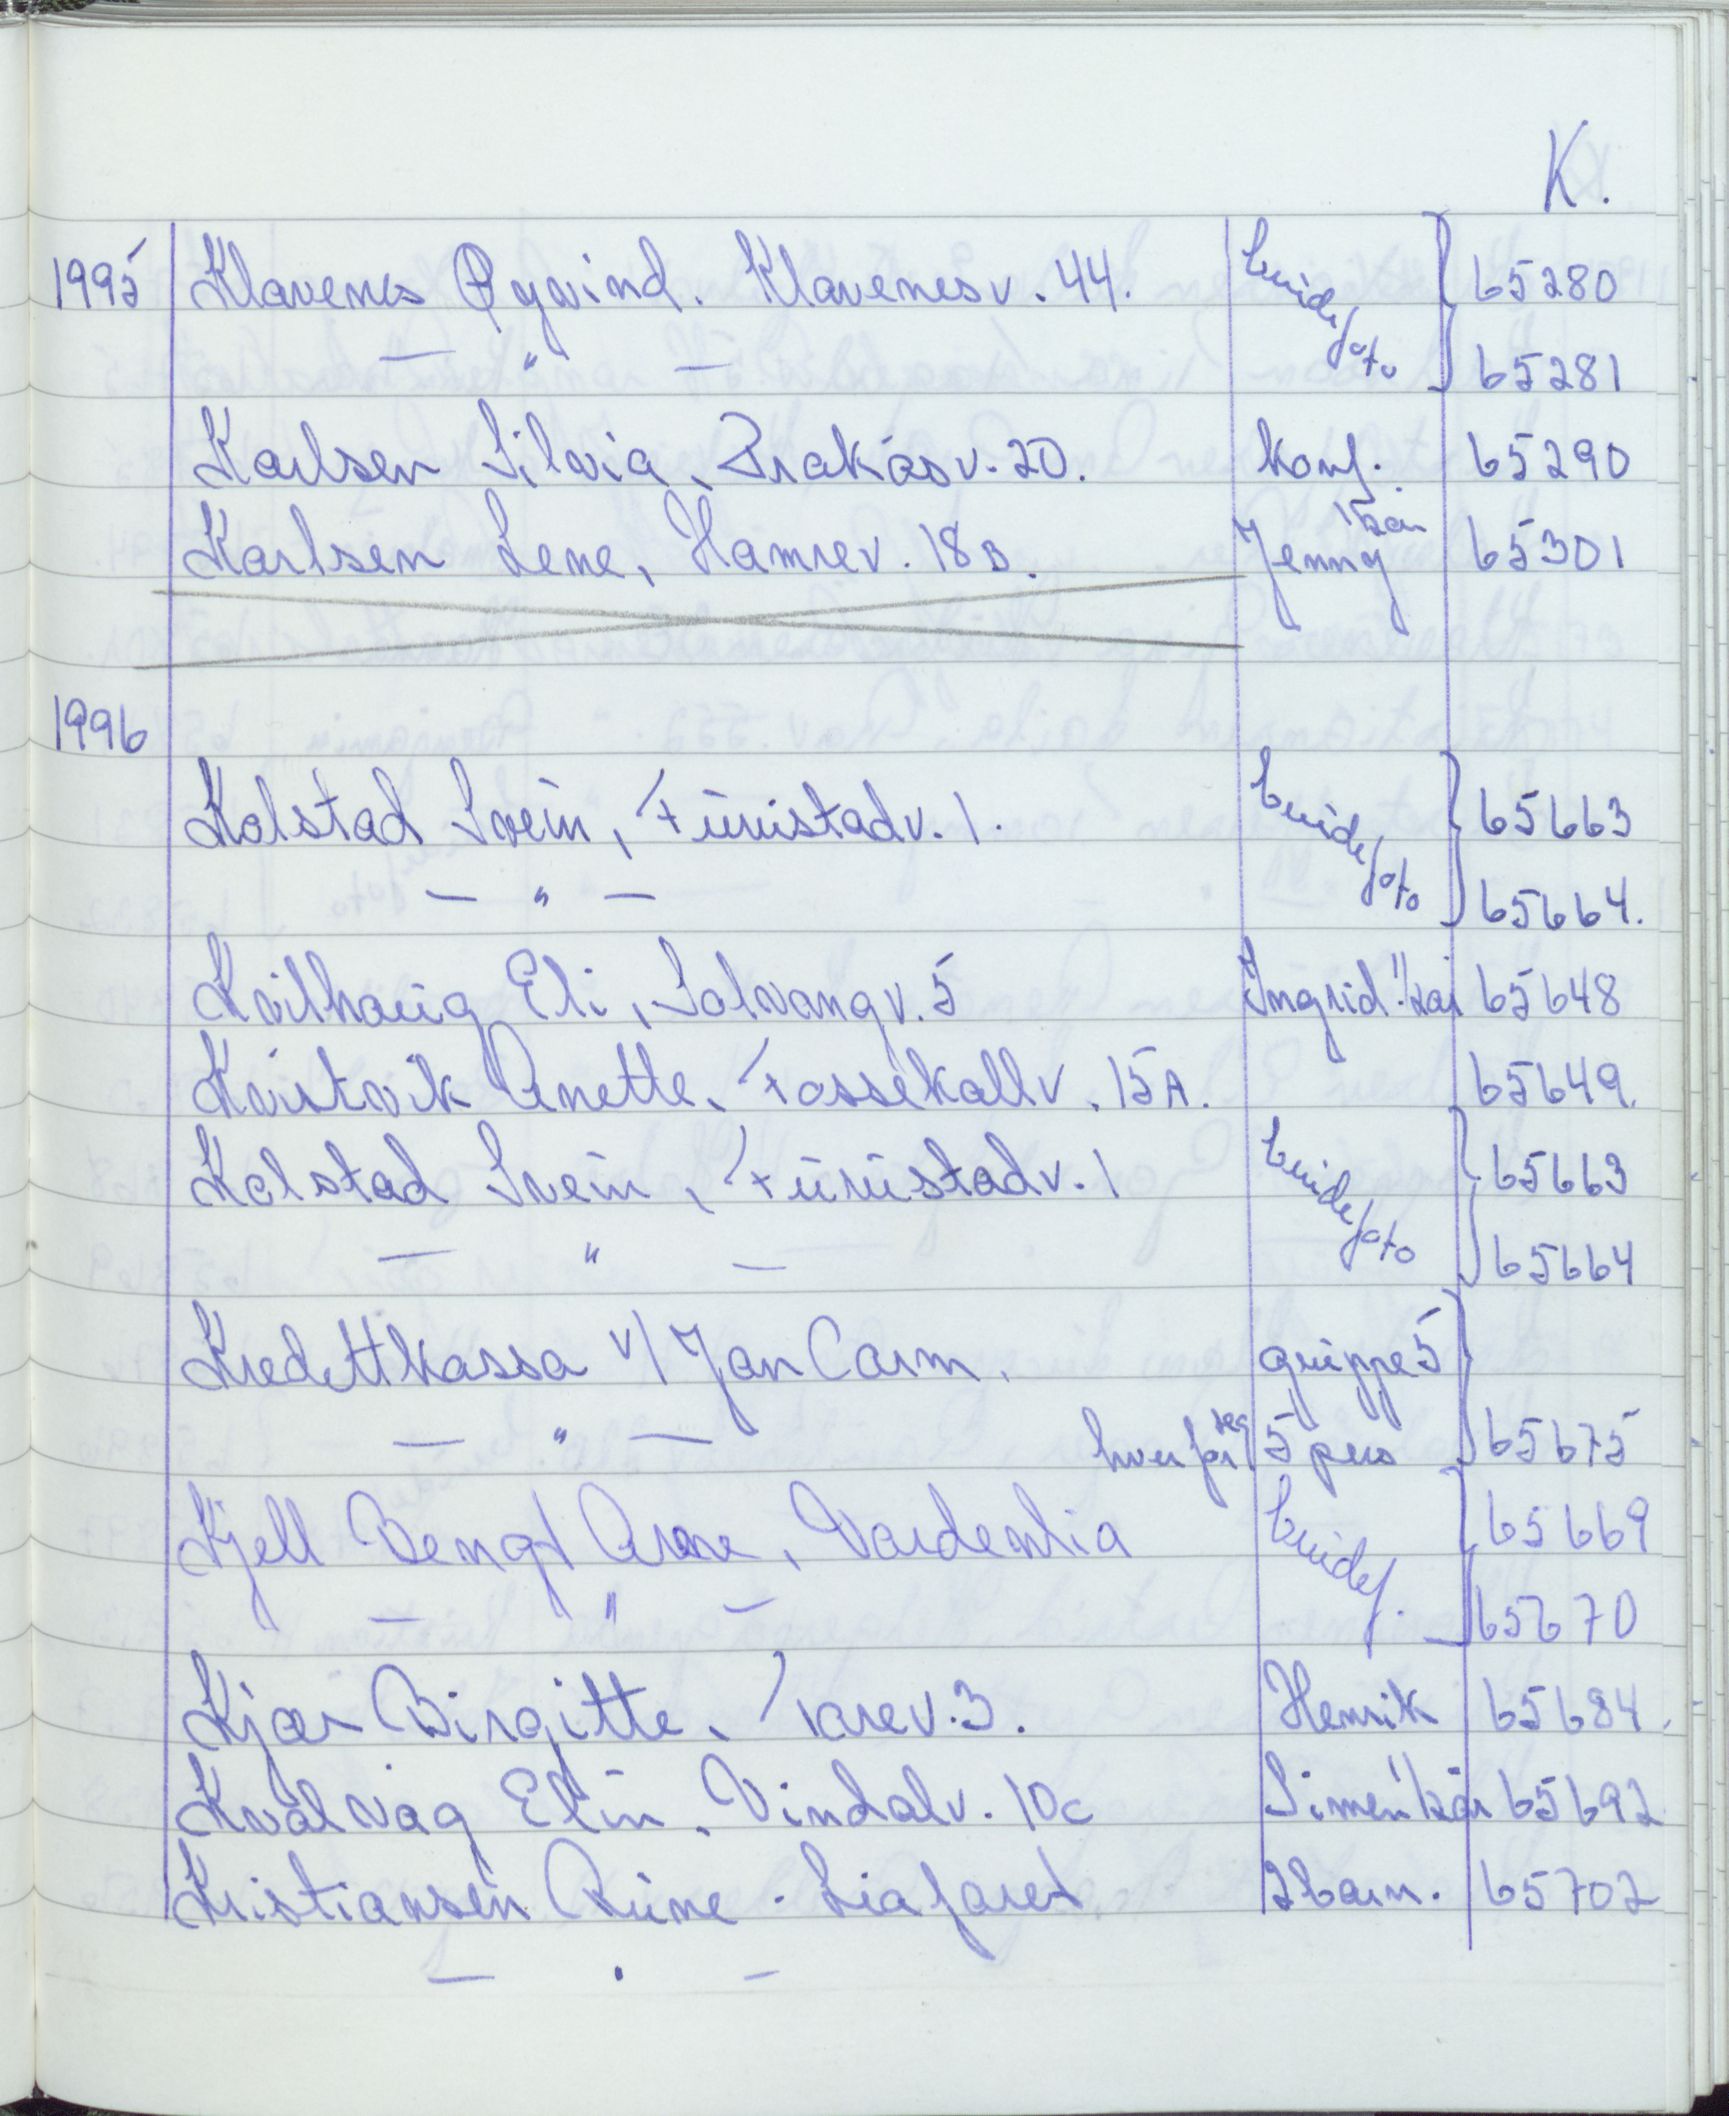 K.
1995 Klavenes Øyvind. Klavenesv. 44. brudefoto 65280
— " — 65281
Karlsen Silvia, Bråkåsv. 20. konf. 65290
Karlsen Lene, Hamrev. 18B. Jenny 1/2 år 65301
1996
Kolstad Svein, Furustadv. 1. brudefoto 65663
— " — 65664.
Kvilhaug Eli, Solvangv. 5 Ingrid 1/2 år 65648
Kvistvik Anette, Fossekallv. 15A. 65649.
Kolstad Svein, Furustadv. 1 brudefoto 65663
— " — 65664
Kredittkassa v/ Jan Carm. gruppe 5
— " — hver for seg 5 pers 65675
Kjell Bengt Arne, Vardenlia brudef. 65669
— " — 65670
Kjær Birgitte, Torev. 3. Henrik 65684.
Kvålvåg Elin, Vindalv. 10c Simen 1/2 år 65692
Kristiansen Rune. Liafaret 2 barn. 65702
— . —